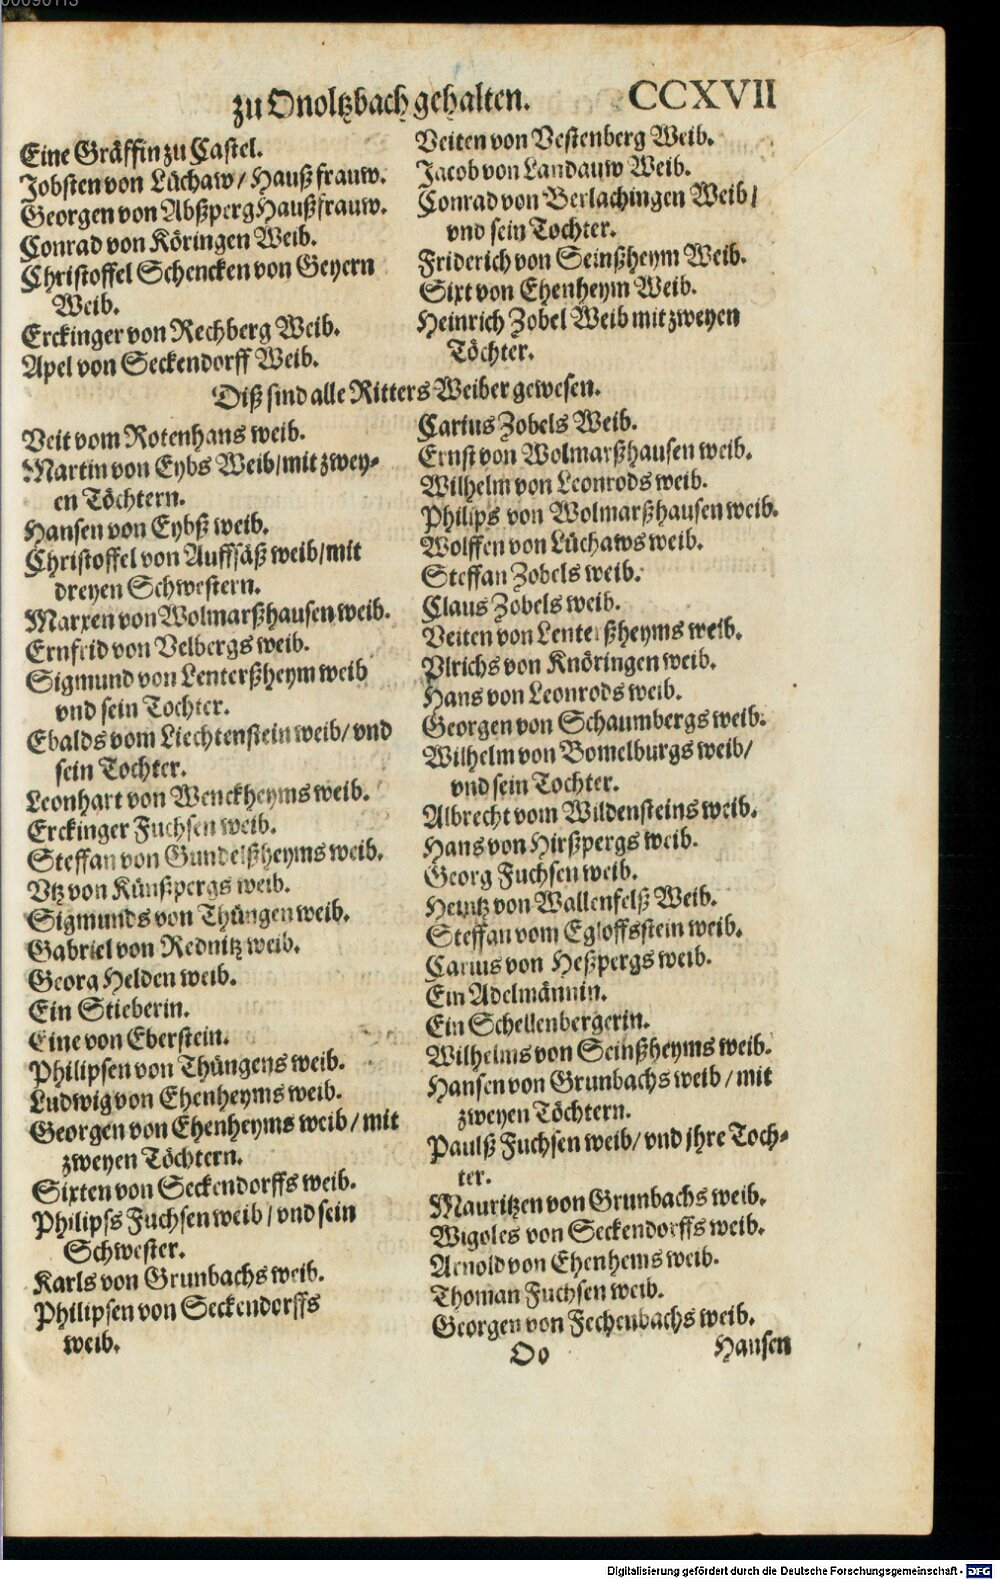 zu Onoltzbach gehalten. CCXVII
Eine Gräffin zu Castel.
Jobsten von Lüchaw / Hauß frauw.
Georgen von Abßperg Haußfrauw.
Conrad von Köringen Weib.
Christoffel Schencken von Geyern
Weib.
Erckinger von Rechberg Weib.
Apel von Seckendorff Weib.
Veiten von Vestenberg Weib.
Jacob von Landauw Weib.
Conrad von Berlachingen Weib /
vnd sein Tochter.
Friderich von Seinßheym Weib.
Sixt von Ehenheym Weib.
Heinrich Zobel Weib mit zweyen
Töchter.
Diß sind alle Ritters Weiber gewesen.
Veit vom Rotenhans weib.
Martin von Eybs Weib / mit zwey-
en Töchtern.
Hansen von Eybß weib.
Christoffel von Auffsäß weib / mit
dreyen Schwestern.
Marxen von Wolmarßhausen weib.
Ernfrid von Velbergs weib.
Sigmund von Lenterßheym weib
vnd sein Tochter.
Ebalds vom Liechtenstein weib / vnd
sein Tochter.
Leonhart von Wenckheyms weib.
Erckinger Fuchsen weib.
Steffan von Gundelßheyms weib.
Vtz von Künßpergs weib.
Sigmunds von Thüngen weib.
Gabriel von Rednitz weib.
Georg Helden weib.
Ein Stieberin.
Eine von Eberstein.
Philipsen von Thüngens weib.
Ludwig von Ehenheyms weib.
Georgen von Ehenheyms weib / mit
zweyen Töchtern.
Sixten von Seckendorffs weib.
Philipss Fuchsen weib / vnd sein
Schwester.
Karls von Grunbachs weib.
Philipsen von Seckendorffs
weib.
Carius Zobels Weib.
Ernst von Wolmarßhausen weib.
Wilhelm von Leonrods weib.
Philips von Wolmarßhausen weib.
Wolffen von Lüchaws weib.
Steffan Zobels weib.
Claus Zobels weib.
Veiten von Lenterßheyms weib.
Vlrichs von Knöringen weib.
Hans von Leonrods weib.
Georgen von Schaumbergs weib.
Wilhelm von Bomelburgs weib /
vnd sein Tochter.
Albrecht vom Wildensteins weib.
Hans von Hirßpergs weib.
Georg Fuchsen weib.
Heintz von Wallenfelß Weib.
Steffan vom Egloffsstein weib.
Carius von Heßpergs weib.
Ein Adelmännin.
Ein Schellenbergerin.
Wilhelms von Seinßheyms weib.
Hansen von Grunbachs weib / mit
zweyen Töchtern.
Paulß Fuchsen weib / vnd jhre Toch-
ter.
Mauritzen von Grunbachs weib.
Wigoles von Seckendorffs weib.
Arnold von Ehenhems weib.
Thoman Fuchsen weib.
Georgen von Fechenbachs weib.
Oo Hansen
Digitalisierung gefördert durch die Deutsche Forschungsgemeinschaft - DFG